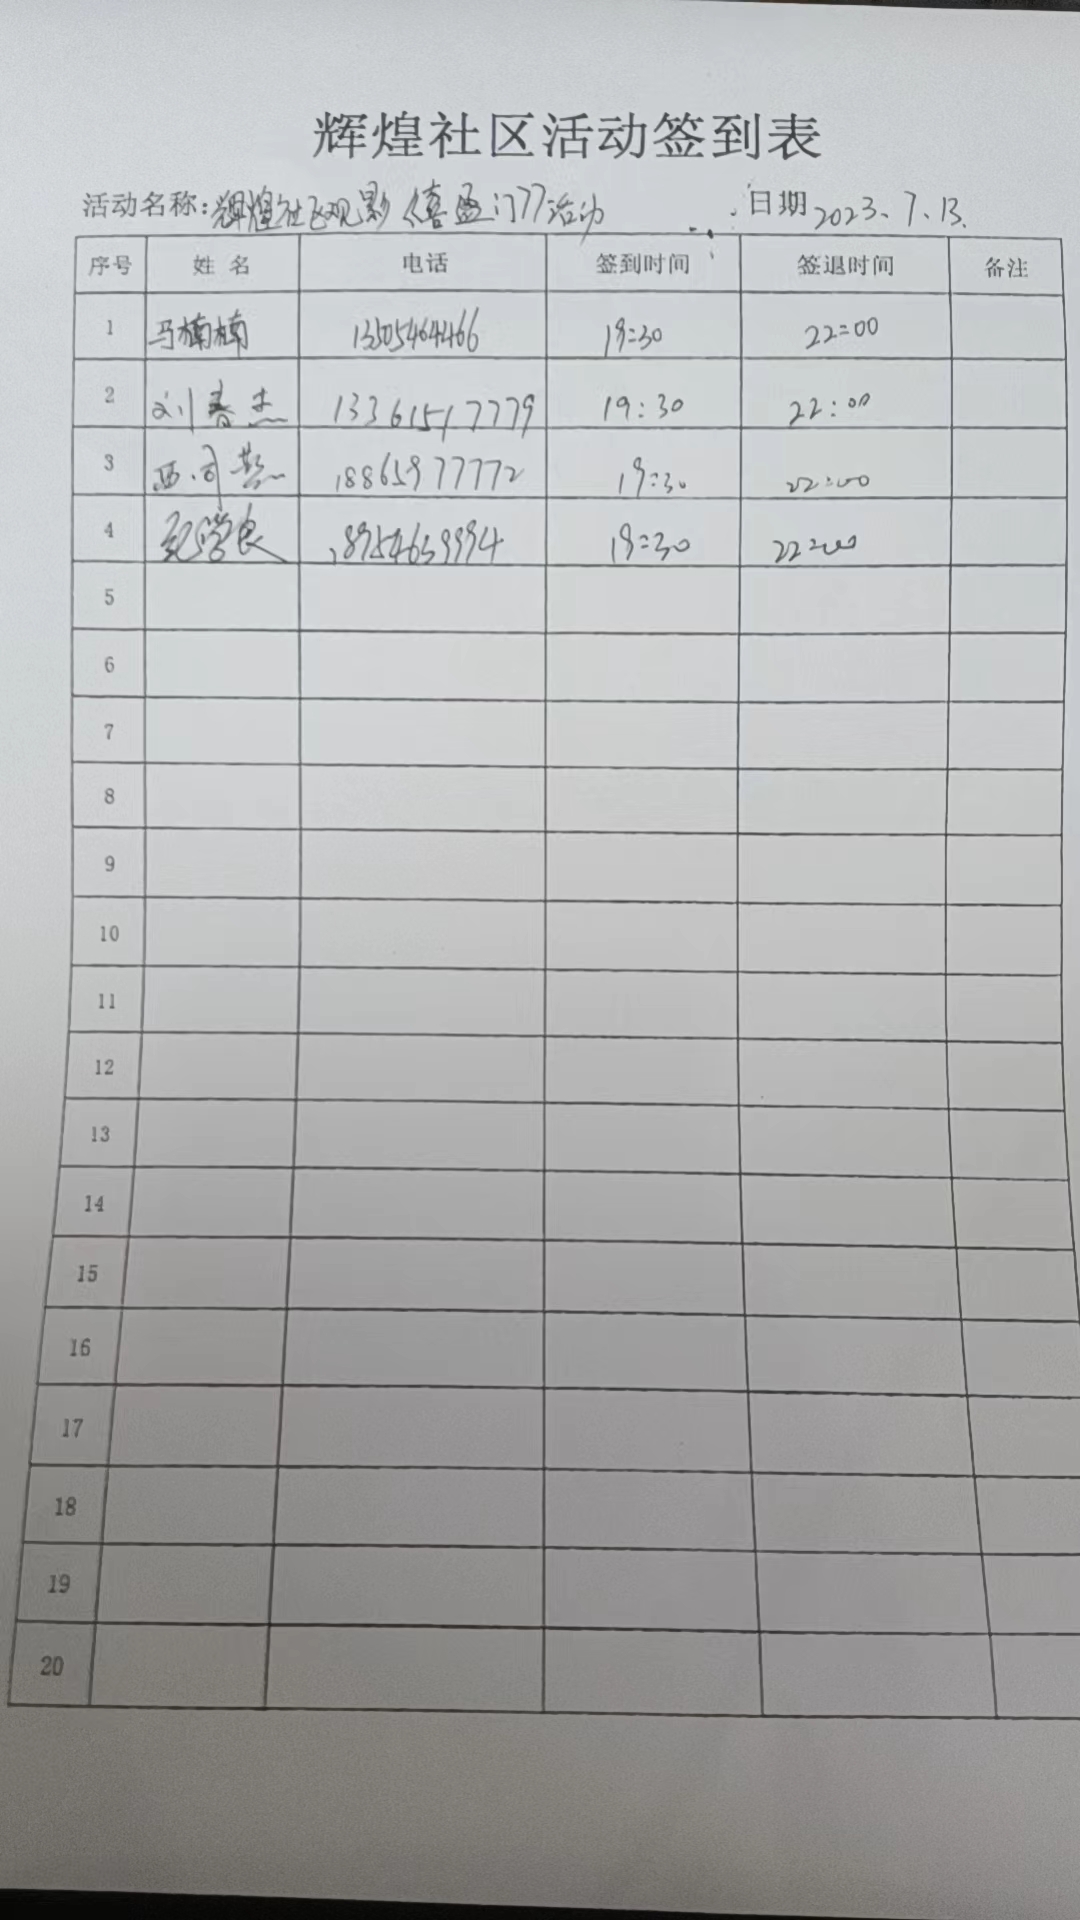 辉煌社区活动签到表
活动名称:辉煌社区观影《喜盈门》活动 日期 2023.7.13.
序号 姓名 电话 签到时间 签退时间 备注
1 马楠楠 13505464466 19:30 22:00
2 刘春杰 13361517779 19:30 22:00
3 西司 18865977772 19:30 22:00
4 良 18954639994 19:30 22:00
5
6
7
8
9
10
11
12
13
14
15
16
17
18
19
20